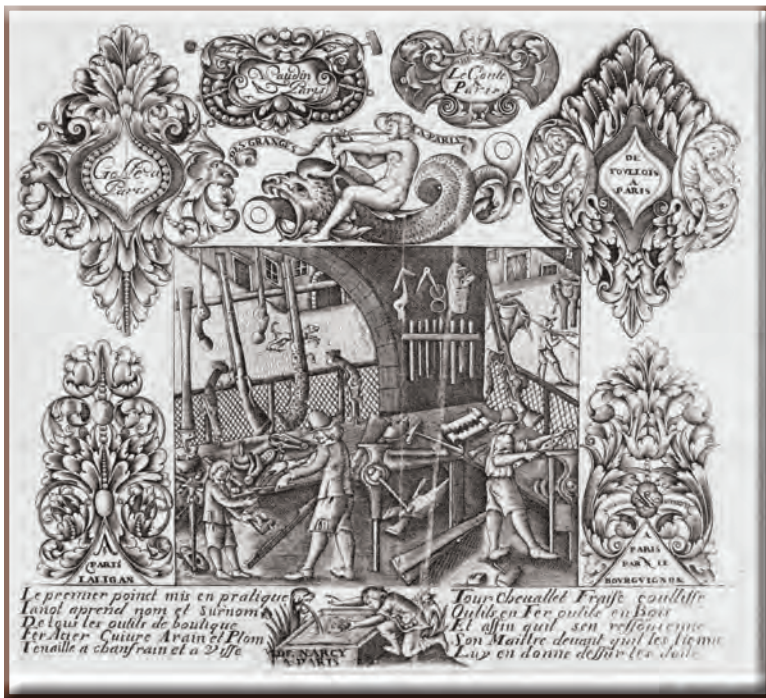 Paris
Le Conte
Paris
DES GRANGES
A PARIS
Paris
DE
A
PARIS
A
PARIS
LALIGAN
A
PARIS
PAR N LE
BOURGUIGNON
Le premier poinct mis en pratique
Ianot aprend nom et Surnom
De tous les outils de boutique
Fer Acier Cuiure Arain et Plom
Tenaille a chanfrain et a Visse
DE NARCY
A PARIS
Tour Cheuallet Fraise coullisse
Outils en Fer outils en Bois
Et affin quil sen
Son Maître deuant quil les
Luy en donne dessur les doits